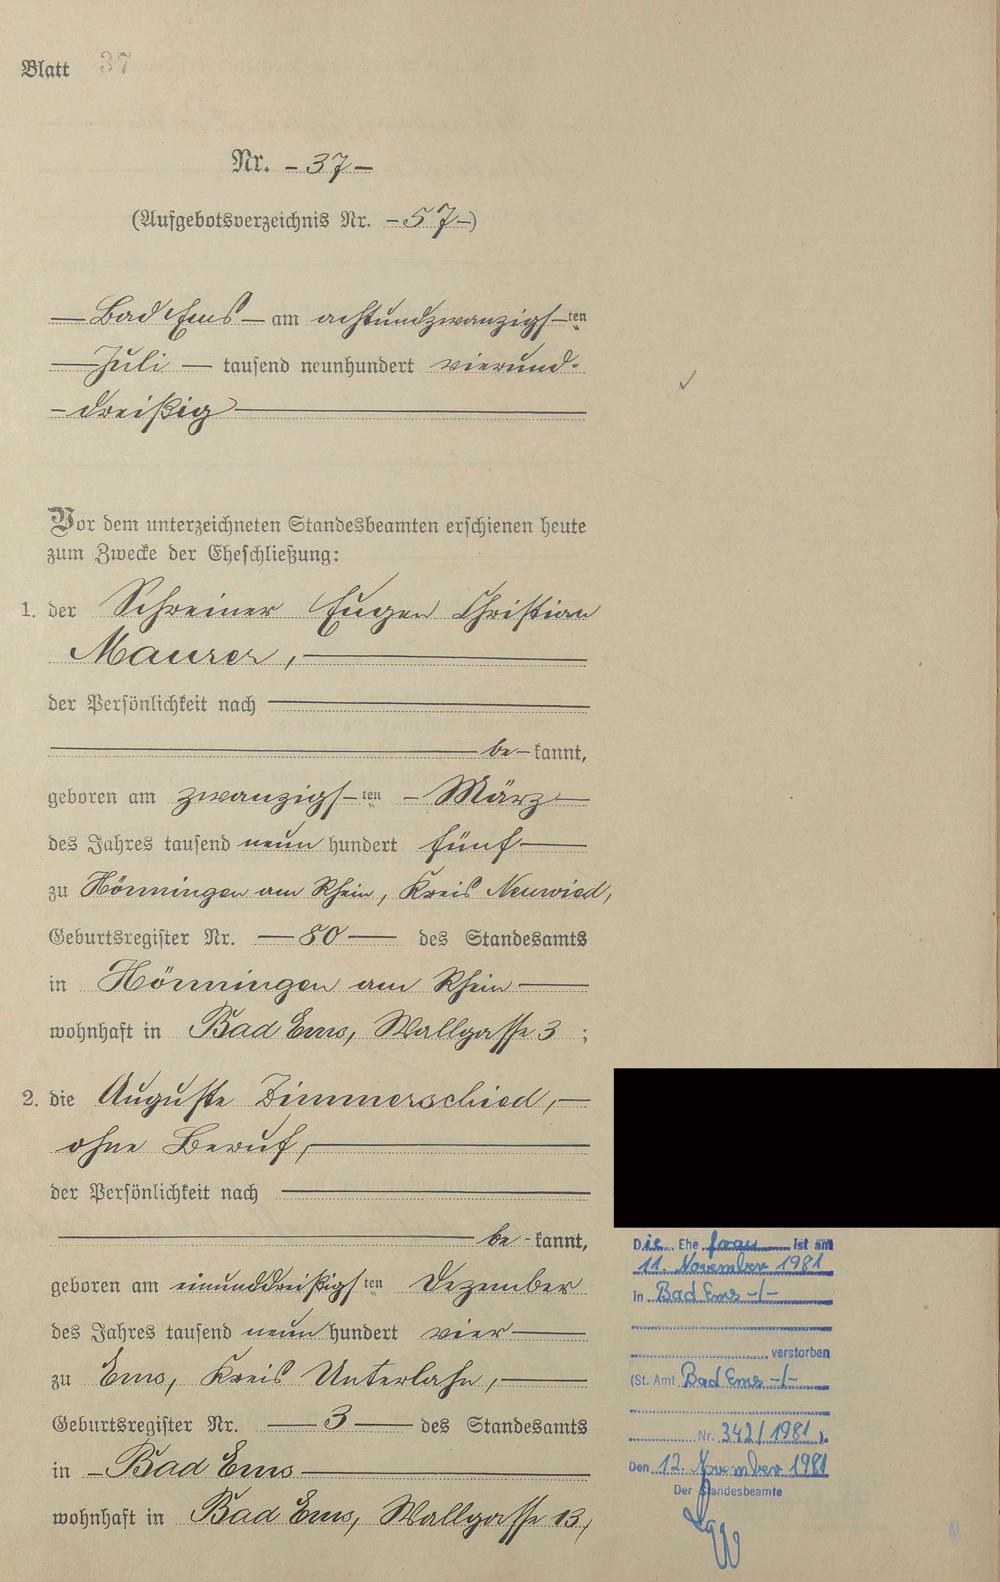 Blatt 37
Nr. – 37 –
(Aufgebotsverzeichnis Nr. – 57 –)
— Bad Ems — am achtundzwanzigs – ten
— Juli — tausend neunhundert vierund-
– dreißig —
Vor dem unterzeichneten Standesbeamten erschienen heute
zum Zwecke der Eheschließung:
1. der Schreiner Eugen Christian
Maurer, —
der Persönlichkeit nach —
— be – kannt,
geboren am zwanzigs – ten – März —
des Jahres tausend neun hundert fünf —
zu Hönningen am Rhein, Kreis Neuwied,
Geburtsregister Nr. — 80 — des Standesamts
in Hönningen am Rhein —
wohnhaft in Bad Ems, Wallgasse 3 ;
2. die Auguste Zimmerschied, —
ohne Beruf, —
der Persönlichkeit nach —
— be - kannt,
geboren am einunddreißigs ten Dezember
des Jahres tausend neun hundert vier —
zu Ems, Kreis Unterlahn, —
Geburtsregister Nr. — 3 — des Standesamts
in – Bad Ems —
wohnhaft in Bad Ems, Wallgasse 13,
Die Ehe frau ist am
11. November 1981
in Bad Ems -/-
verstorben
(St. Amt Bad Ems -/-
Nr. 342/1981 ).
Den 12. November 1981
Der Standesbeamte